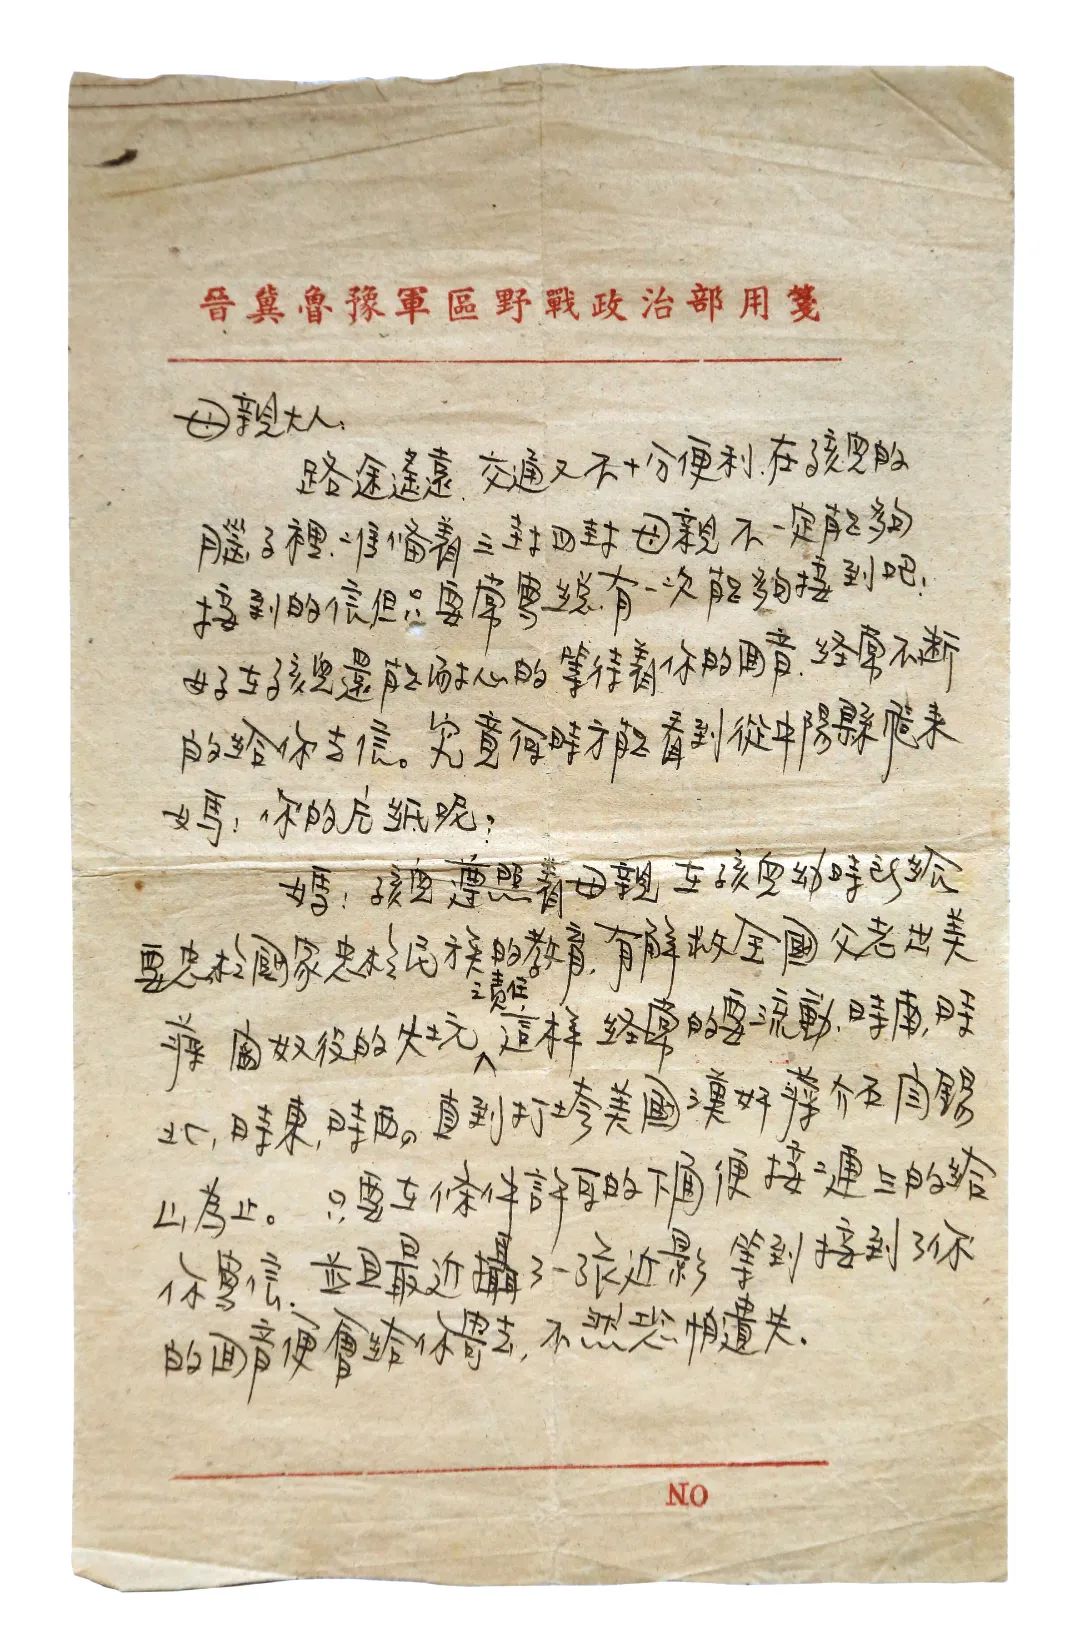 晉冀魯豫軍區野戰政治部用箋
母親大人：
路途遙遠，交通又不十分便利，在孩兒的
腦子裡，準備着三封四封母親不一定能夠
接到的信但只要常寫總有一次能夠接到吧！
好在孩兒還能耐心的等待着你的回音，經常不斷
的給你去信。究竟何時才能看到從中陽縣飛來
媽！你的片紙呢？
媽！孩兒遵照着母親在孩兒幼時所給
要忠於國家忠於民族的教育，有解救全國父老出美
之責任，
蔣奴役的火坑這樣經常的要流動，時南，時
北，時東，時西。直到打垮美國漢奸蔣介石閻錫
山為止。只要在條件許可的下面便接二連三的給
你寫信，並且最近攝了一張近影等到接到了你
的回音便會給你寄去，不然恐怕遺失。
NO